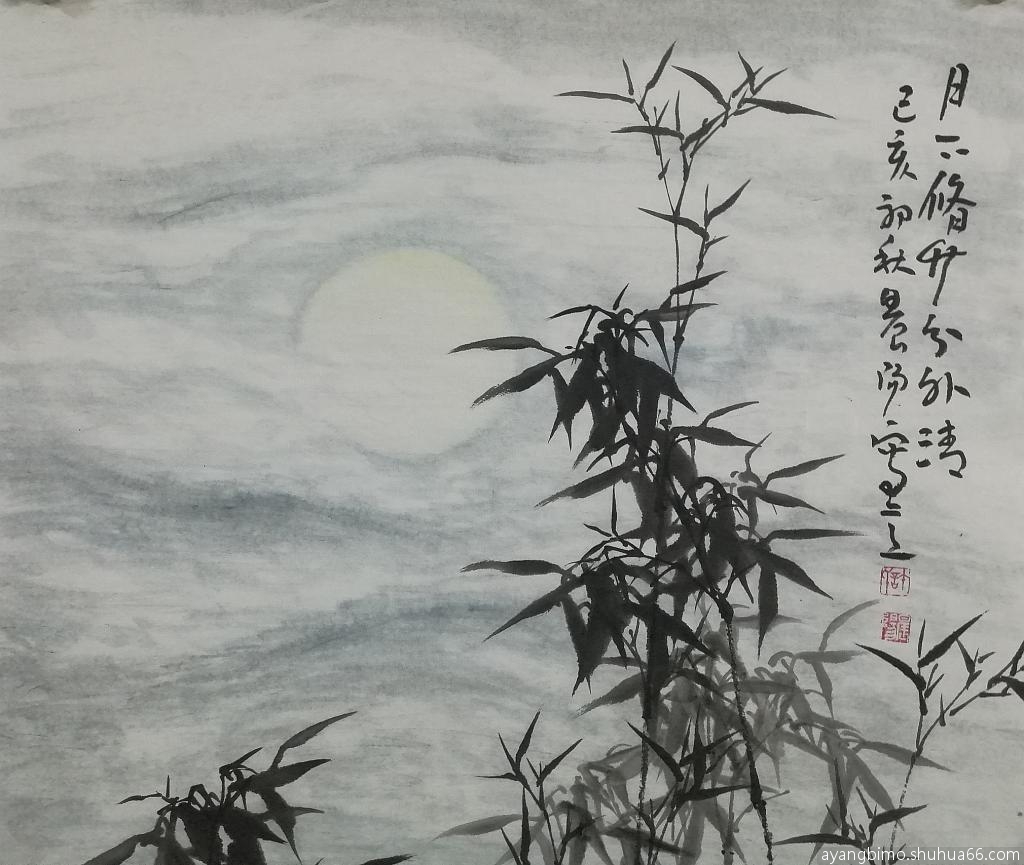 月下脩竹分外清
己亥初秋晨阳写之
ayangbimo.shuhua66.com